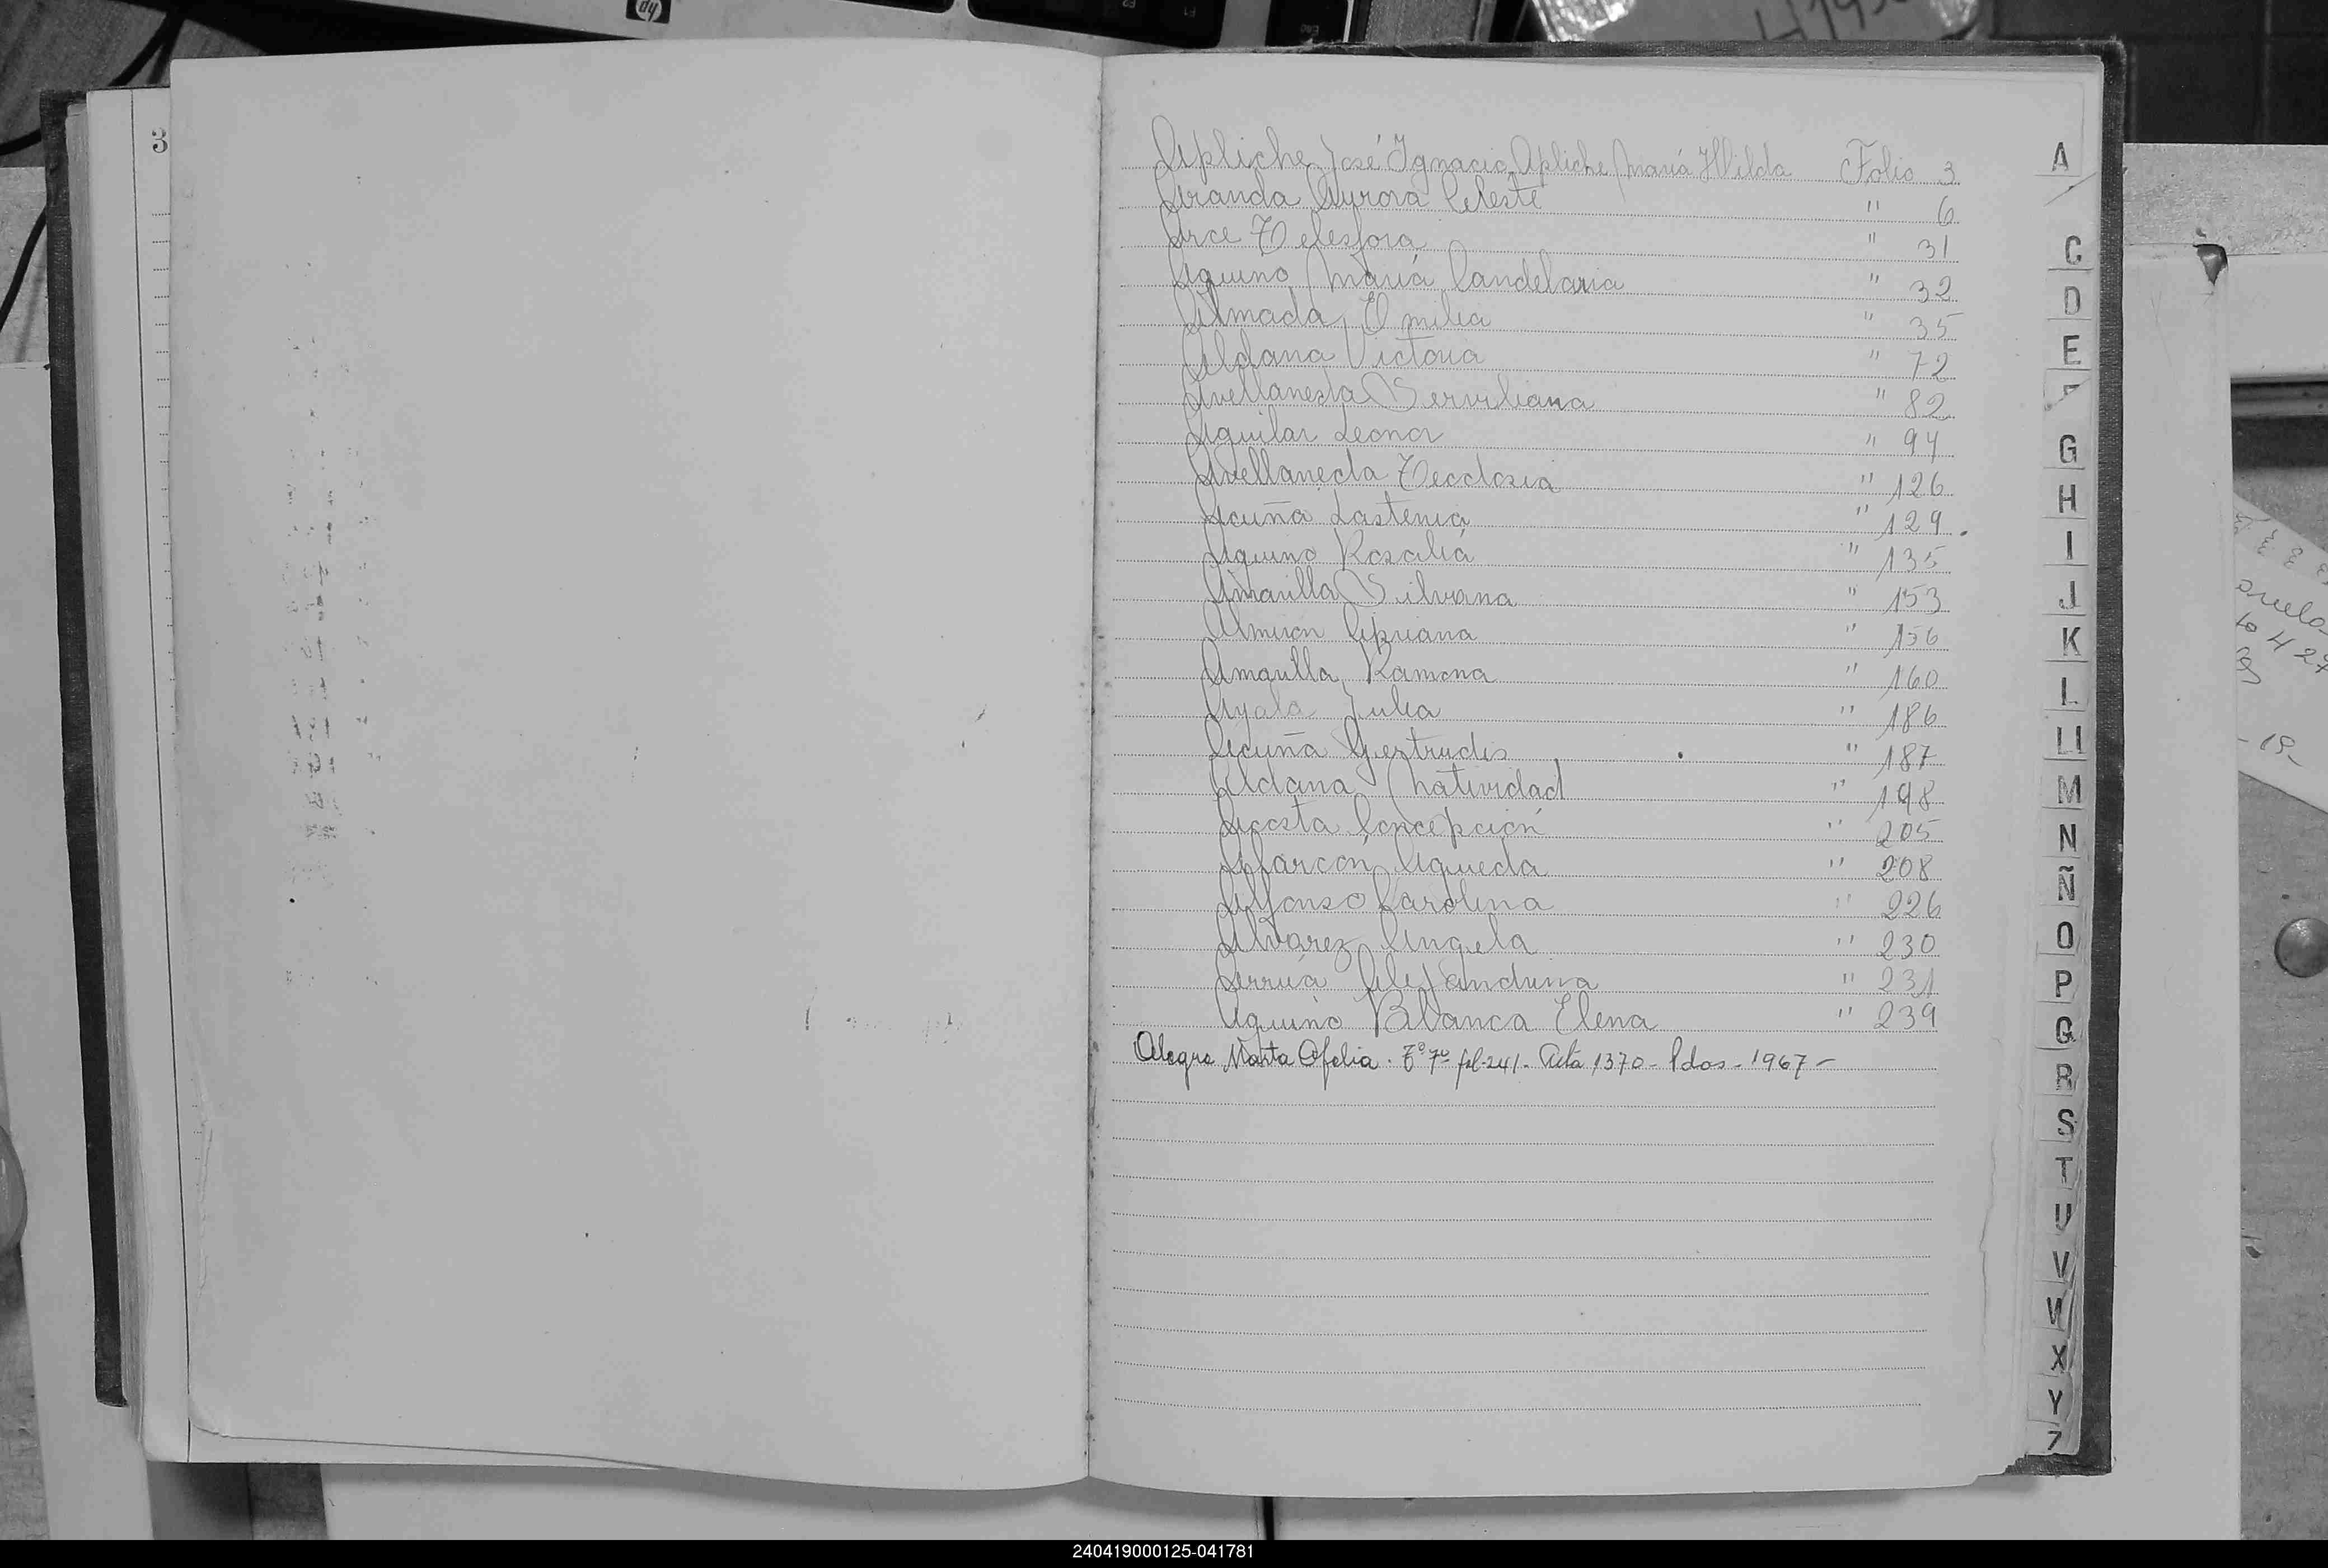 3
Apliche José Ignacio, Apliche María Hilda Folio 3
Aranda Aurora Celeste " 6
Arce Telesfora " 31
Aquino María Candelaria " 32
Almada, Emilia " 35
Aldana Victoria " 72
Avellaneda Serviliana " 82
Aguilar Leonor " 94
Avellaneda Teodosia " 126
Acuña Lastenia " 129
Aquino Rosalía " 135
Amarilla Silvana " 153
Almiron Cipriana " 156
Amarilla Ramona " 160
Ayala Julia " 186
Acuña Gertrudis " 187
Aldana Natividad " 198
Acosta Concepción " 205
Alarcón Agueda " 208
Alfonso Carolina " 226
Alvarez Angela " 230
Arrúa Alejandrina " 231
Aquino Blanca Elena " 239
Alegre Marta Ofelia. Tº 7º fol. 241. Acta 1370 - Pdos - 1967 -
A
C
D
E
F
G
H
I
J
K
L
Ll
M
N
Ñ
O
P
Q
R
S
T
U
V
W
X
Y
Z
hp
240419000125-041781